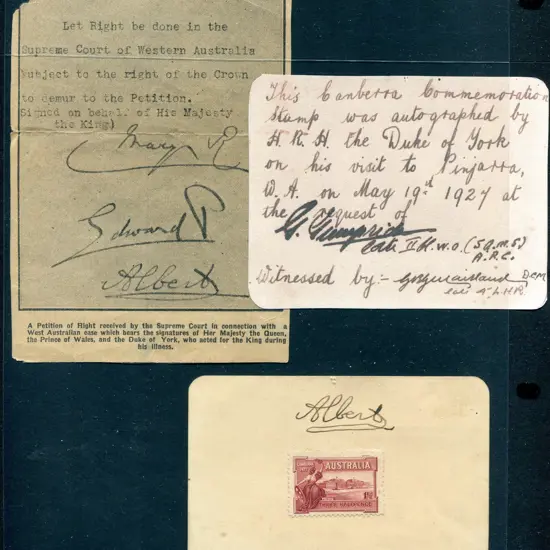 Let Right be done in the
Supreme Court of Western Australia
subject to the right of the Crown
to demur to the Petition.
Signed on behalf of His Majesty
the King)
Mary R
Edward P
Albert
A Petition of Right received by the Supreme Court in connection with a
West Australian case which bears the signatures of Her Majesty the Queen,
the Prince of Wales, and the Duke of York, who acted for the King during
his illness.
This Canberra Commemoration
Stamp was autographed by
H.R.H. the Duke of York
on his visit to Pinjarra,
W.A. on May 19th 1927 at
the request of
G.
late II K.W.O. (S.Q.M.S)
A.P.C.
Witnessed by:-
DCM
late
Albert
AUSTRALIA
THREE HALFPENCE